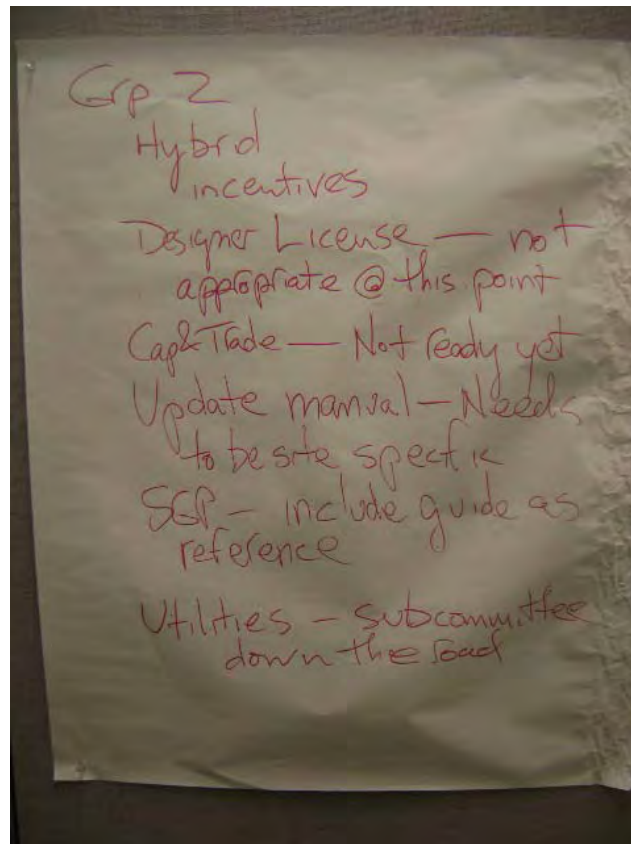 Grp 2
Hybrid
incentives
Designer License — not
appropriate @ this point
Cap&Trade — Not ready yet
Update manual — Needs
to be site specific
SGP — include guide as
reference
Utilities — subcommittee
down the road